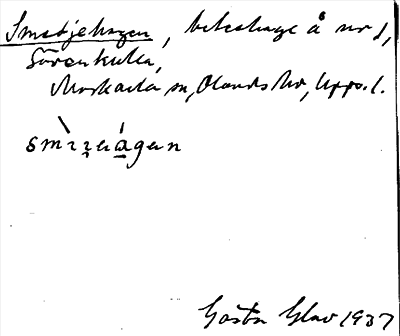 Smedjehagen, beteshage å nr 1,
Sörenkulla,
Morkarla sn, Olands hd, Upps. l.
smìʒɐágɐn
Gösta Glav 1937